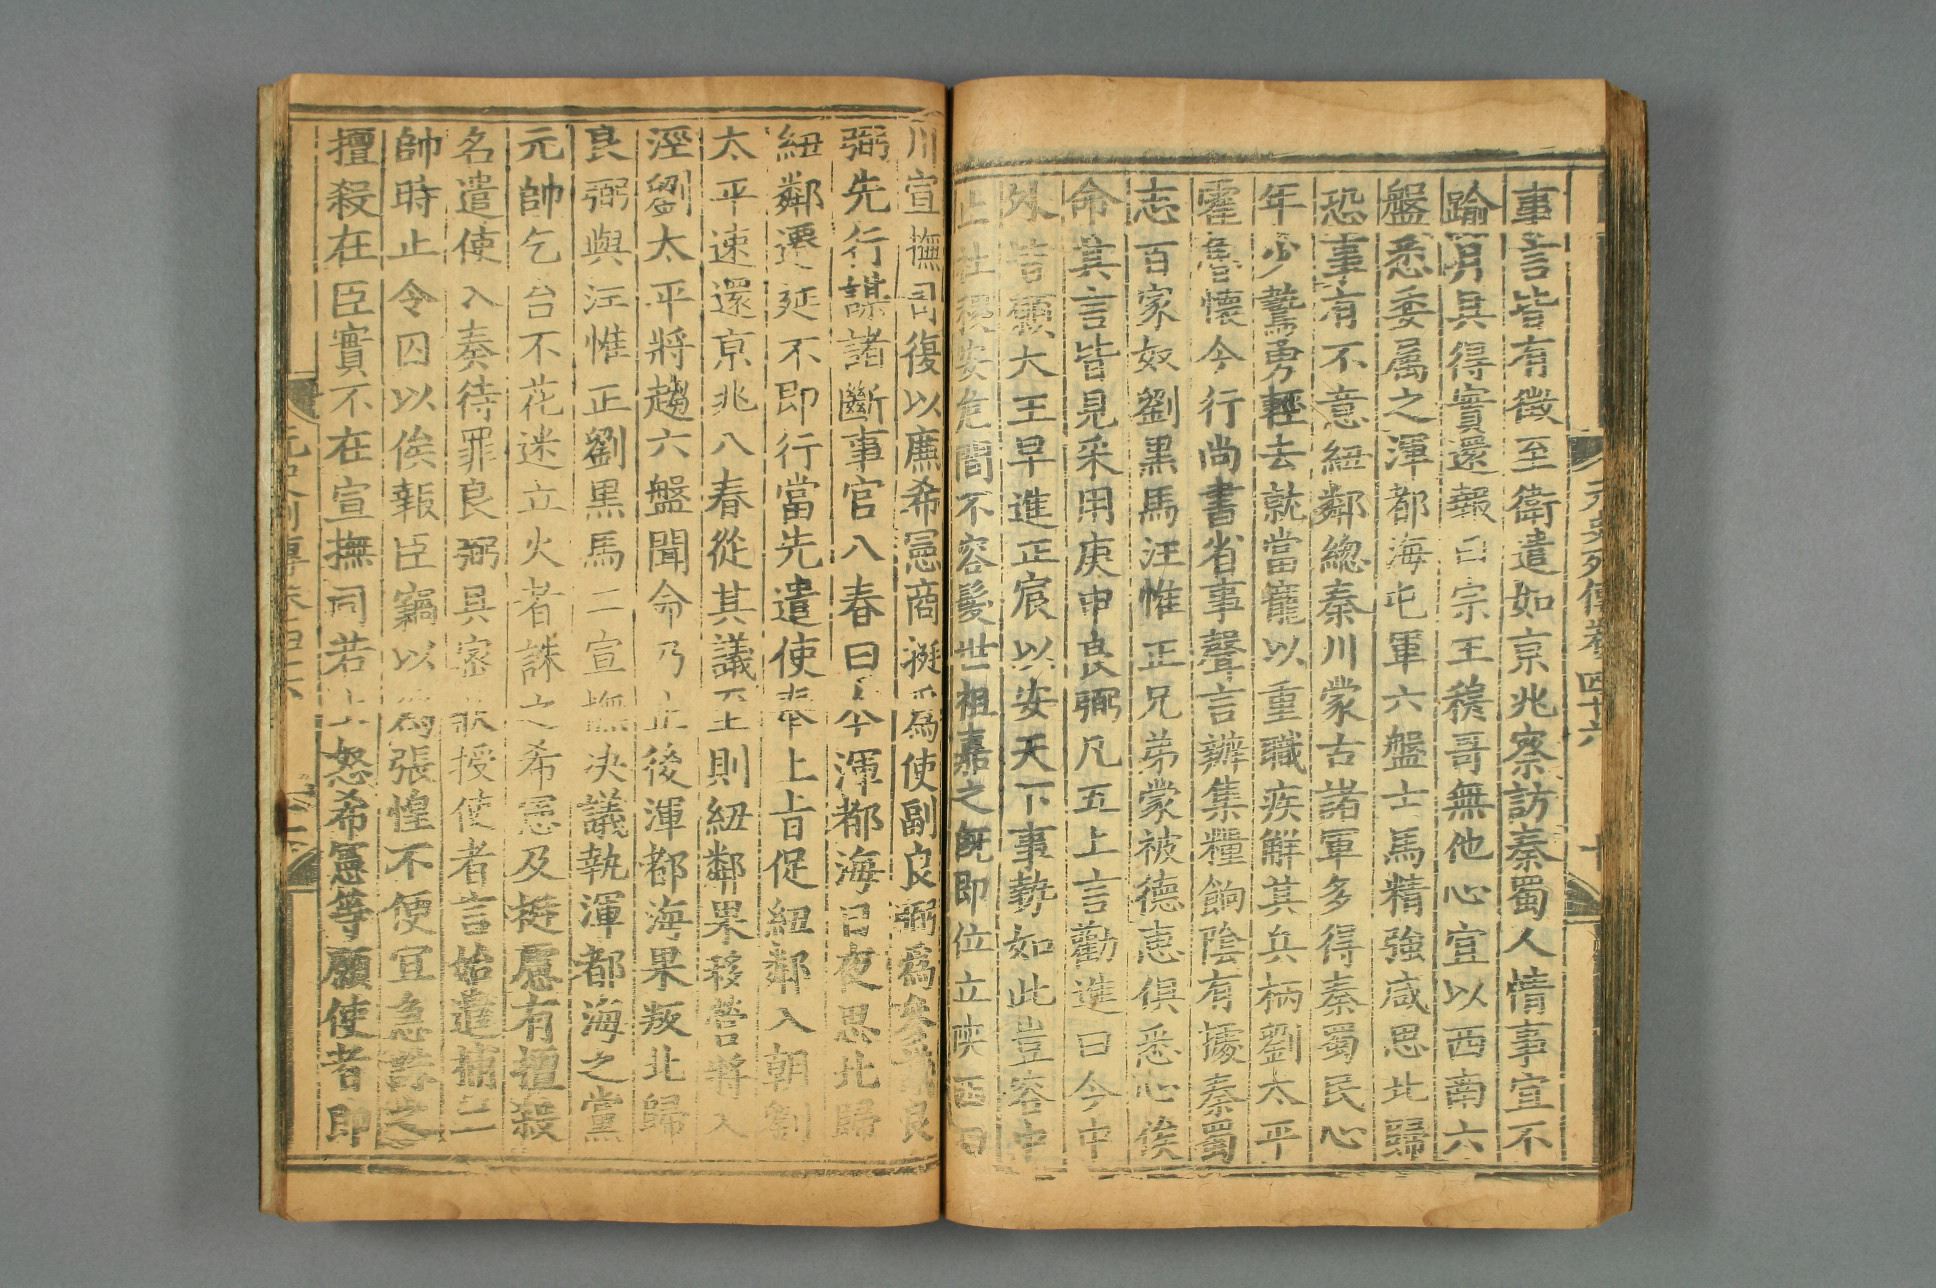 元史列傳卷四十六 十
事言皆有徵至衛遣如京兆察訪秦蜀人情事宜不
踰月具得實還報曰宗王穆哥無他心宜以西南六
盤悉委屬之渾都海屯軍六盤士馬精強咸思北歸
恐事有不意紐鄰總秦川蒙古諸軍多得秦蜀民心
年少鷙勇輕去就當寵以重職疾解其兵柄劉太平
霍魯懷今行尚書省事聲言辦集糧餉陰有據秦蜀
志百家奴劉黑馬汪惟正兄弟蒙被德惠俱悉心俟
命其言皆見采用庚申良弼凡五上言勸進曰今中
外皆願大王早進正宸以安天下事勢如此豈容中
止社稷安危間不容髮世祖嘉之既即位立陝西四
川宣撫司復以廉希憲商挺爲使副良弼爲參議良
弼先行謀諸斷事官八春曰今渾都海日夜思北歸
紐鄰遷延不即行當先遣使奉上旨促紐鄰入朝劉
太平速還京兆八春從其議至則紐鄰果移營將入
涇劉太平將趨六盤聞命乃止後渾都海果叛北歸
良弼與汪惟正劉黑馬二宣撫決議執渾都海之黨
元帥乞台不花迷立火者誅之希憲及挺慮有擅殺
名遣使入奏待罪良弼具密狀授使者言始遣捕二
帥時止令囚以俟報臣竊以爲張惶不便宜急誅之
擅殺在臣實不在宣撫司若上怒希憲等願使者即
元史列傳卷四十六